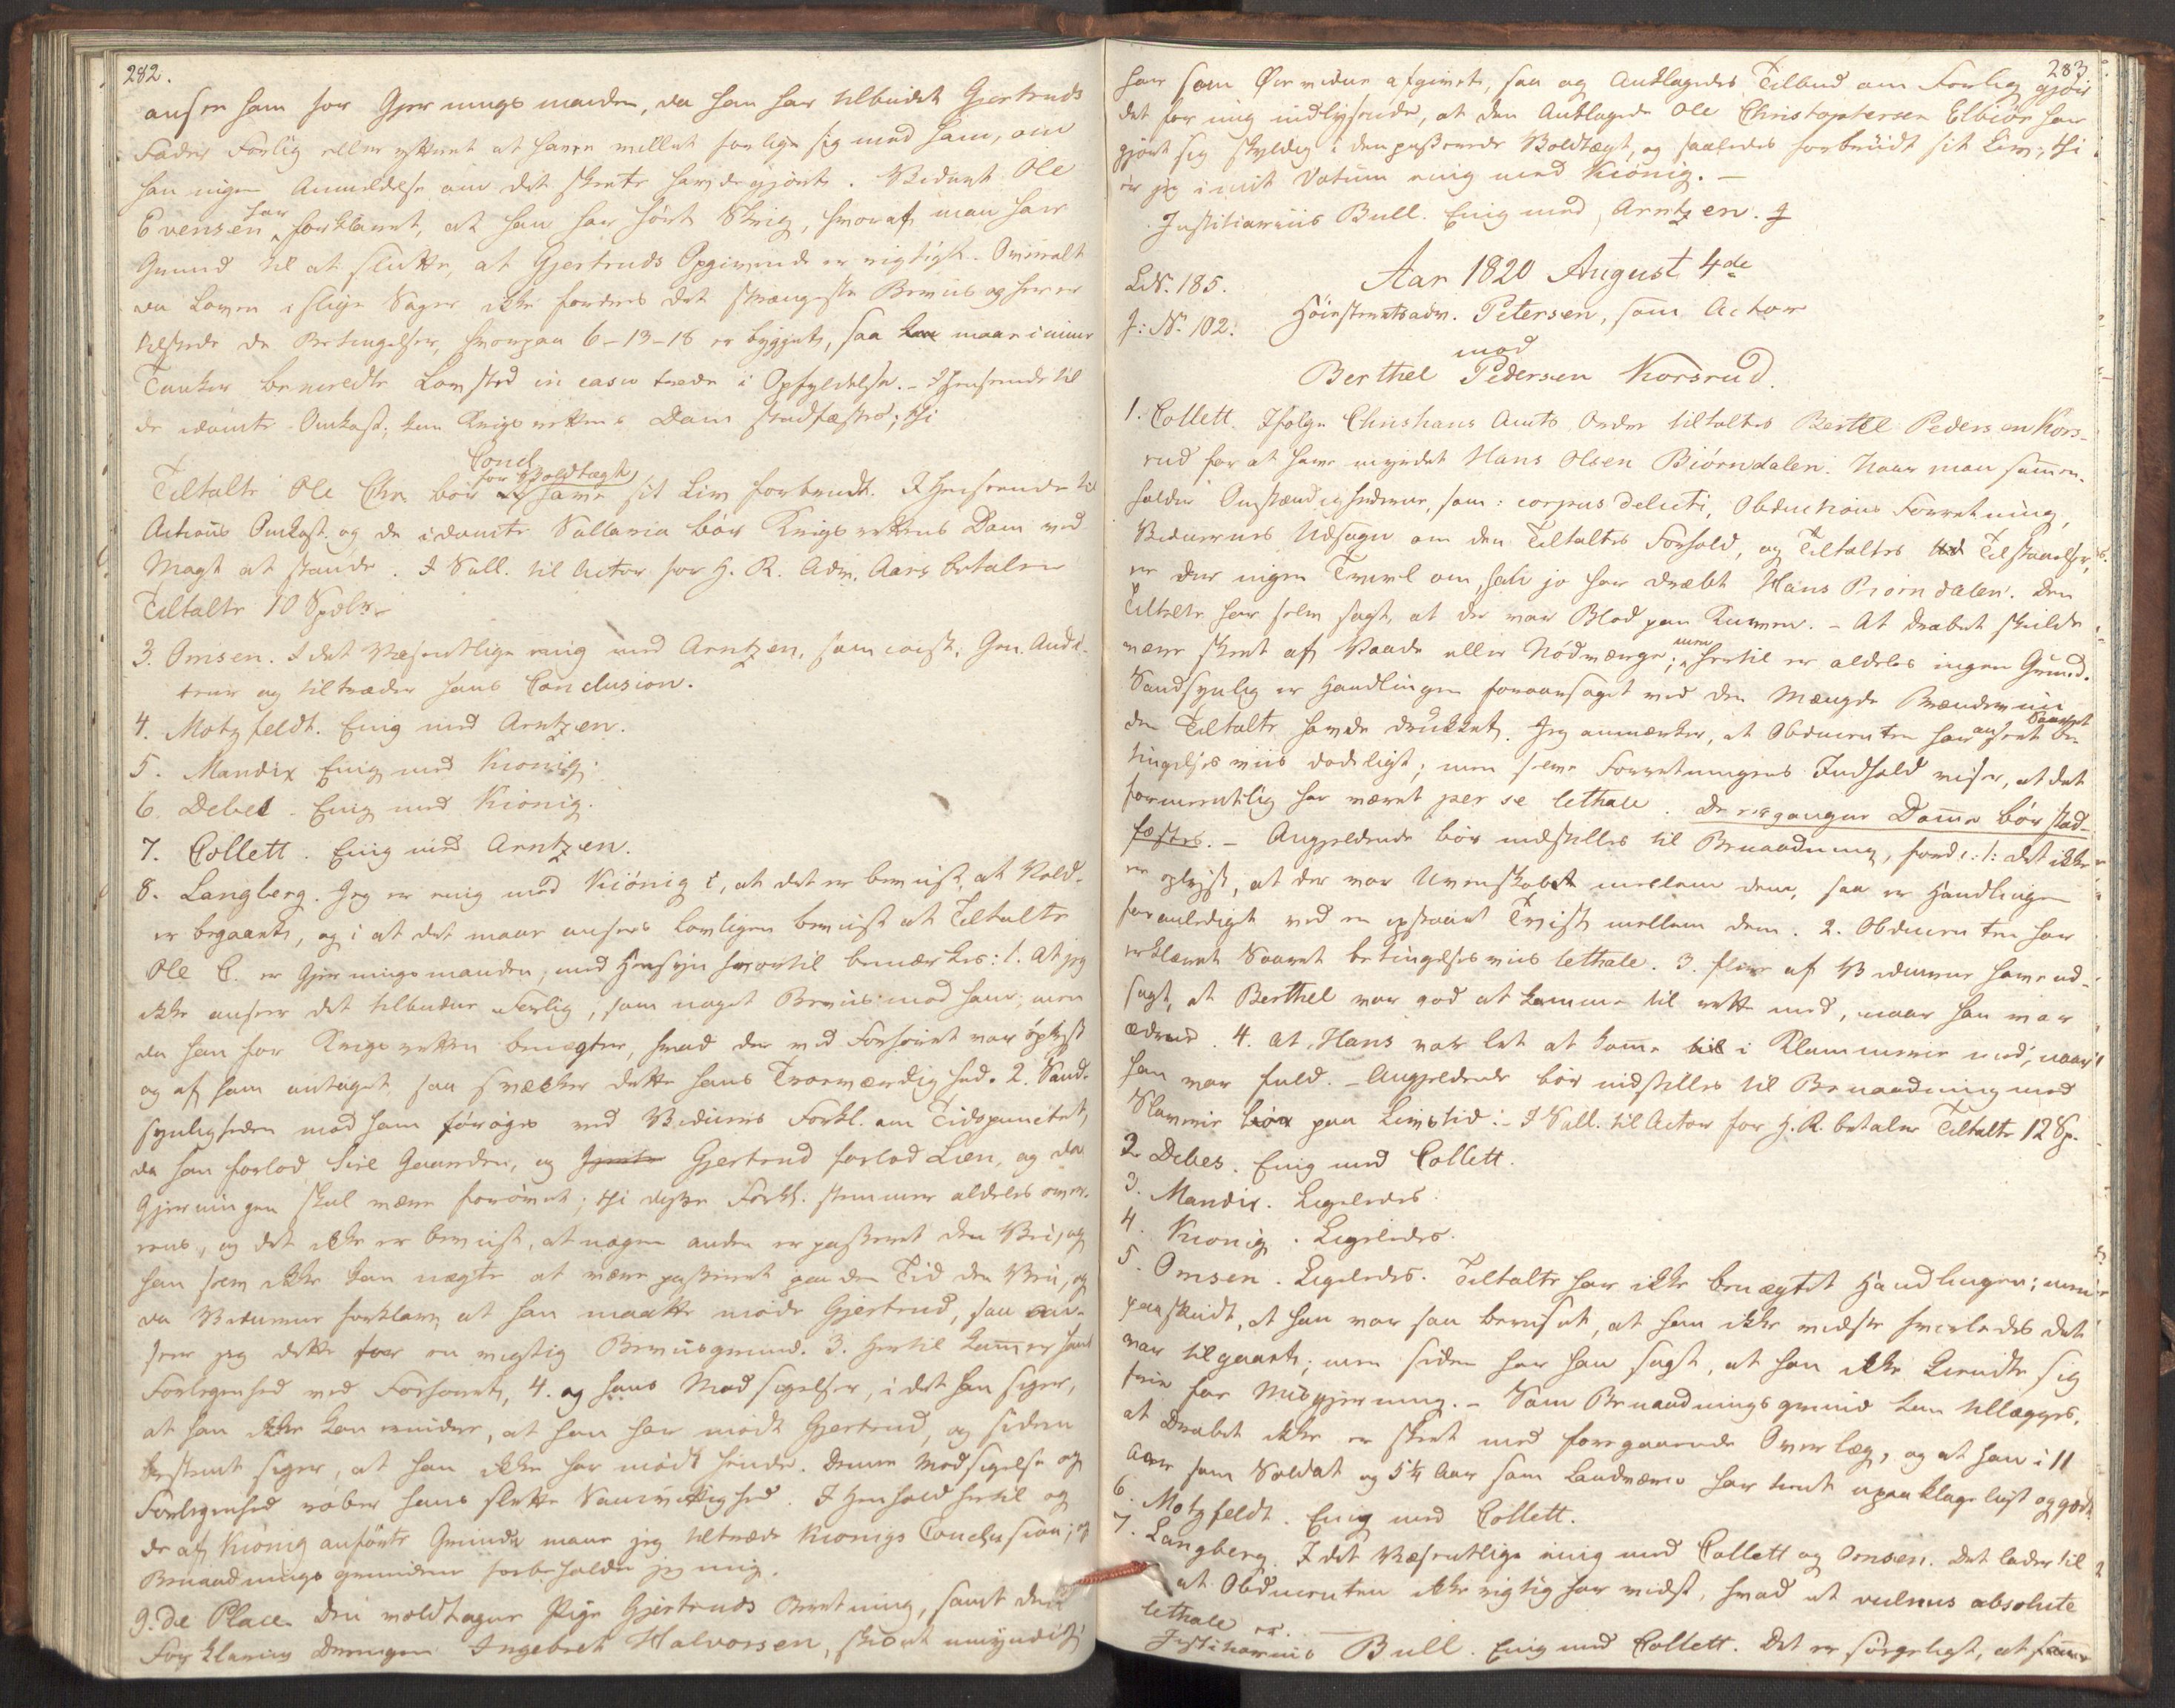 282.
anser ham for Gjerningsmanden, da han har tilbudet Gjertruds
Fader Forlig eller yttret at have villet forlige sig med ham, om
han ingen Anmeldelse om det skeete havde gjort. Vidnet Ole
Evensen har forklaret, at han har hørt Skrig, hvoraf man har
Grund til at slutte, at Gjertruds Opgivende er rigtigt. Overalt
da Loven i slige Sager ikke fordrer det strængeste Beviis og her er
tilstede de Betingelser, hvorpaa 6-13-18 er bygget, saa maae i mine
Tanker benævnte Lovsted in casu træde i Opfyldelse. - I Henseende til
de idømte Omkost. kan Krigsrettens Dom stadfæstes; thi
Cond
Tiltalte Ole Chr. bør for Voldtægt have sit Liv forbrudt. I Henseende til
Actions Omkost. og de idømte Sallaria bør Krigsrettens Dom ved
Magt at stande. I Sall. til Actor for H. R. Adv. Aars betaler
Tiltalte 10 Spdlr. -
3. Omsen. I det Væsentlige enig med Arntzen, som const. Gen. Audi-
teur og tiltræder hans Conclusion.
4. Motzfeldt. Enig med Arntzen.
5. Mandix Enig med Kiønig.
6. Debes. Enig med Kiønig.
7. Collett. Enig med Arntzen.
8. Langberg. Jeg er enig med Kiönig i, at det er beviist, at Vold-
er begaaet, og i at det maae ansees lovligen beviist at Tiltalte
Ole C. er Gjerningsmanden, med Hensyn hvortil bemærkes: 1. At jeg
ikke anseer det tilbudne Forlig, som noget Beviis mod ham; men
da han for Krigsretten benægter, hvad der ved Forhøret var oplyst
og af ham antaget, saa svækker dette hans Troværdighed. 2. Sand-
synligheden mod ham forøges ved Vidners Forkl. om Tidspunctet,
da han forlod Gaarden, og Gjertrud forlod Lien, og da
Gjerningen skal være forøvet; thi disse Forkl. stemmer aldeles over-
eens, og det ikke er beviist, at nogen anden er passeret den Vei, og
han selv ikke kan nægte at være passeret paa den Tid den Vei, og
da Vidnerne forklare, at han maatte møde Gjertrud, saa an-
seer jeg dette for en vigtig Beviisgrund. 3. Hertil kommer hans
Forlegenhed ved Forhøret, 4. og hans Modsigelser, i det han siger,
at han ikke kan mindes, at han har mødt Gjertrud, og siden
bestemt siger, at han ikke har mødt hende. Denne Modsigelse og
Forlegenhed røber hans slette Samvittighed. I Henhold hertil og
de af Kiönig anførte Grunde maae jeg tiltræde Kiönigs Conclusion; og
Benaadningsgrundene forbeholder jeg mig.
9. de Place. Den voldtagne Pige Gjertruds Beretning, samt den
Forklaring Drengen Ingebret Halvorsen, skiønt umyndig,
283.
har som Øievidne afgivet, saa og Anklagedes Tilbud om Forlig gjør
det for mig indlysende, at den Anklagede Ole Christophersen Elbiör har
gjort sig skyldig i den passerede Voldtægt, og saaledes forbrudt sit Liv; thi
er jeg i mit Votum enig med Kiönig. -
Justitiarius Bull. Enig med Arntzen.
Aar 1820 August 4de
LN. 185.
J: N. 102.
Høiesteretsadv. Petersen, som Actor
mod
Berthel Pedersen Korsrud.
1. Collett. Ifølge Christians Amts Ordre tiltaltes Bertel Pedersen Kors-
rud for at have myrdet Hans Olsen Biörndalen. Naar man sammen-
holder Omstændighederne, som: corpus delicti, Obductions Forretning,
Vidnernes Udsagn om den Tiltaltes Forhold, og Tiltaltes Tilstaaelser,
er der ingen Tvivl om, han jo har dræbt Hans Biörndalen. Den
Tiltalte har selv sagt, at der var Blod paa Kniven. - At Drabet skulde
være skeet af Vaade eller Nødværge; men hertil er aldeles ingen Grund.
Sandsynlig er Handlingen foraarsaget ved den Mængde Brændeviin
den Tiltalte havde drukket. Jeg anmærker, at Obducenten har anseet Saaret be-
tingelsesviis dødeligt; men selve Forretningens Indhold viser, at det
formeentlig har været per se lethale. De ergangne Domme bør stad-
fæstes. - Angjeldende bør indstilles til Benaadning, fordi: 1: det ikke
er oplyst, at der var Uvenskab mellem dem, saa er Handlingen
foranlediget ved en opstaaet Tvist mellem dem. 2. Obducenten har
erklæret Saaret betingelsesviis lethale. 3. flere af Vidnerne have ud-
sagt, at Berthel var god at komme til rette med, naar han var
ædrue. 4. at Hans var let at komme i Klammerie med, naar
han var fuld. - Angjeldende bør indstilles til Benaadning med
Slaverie paa Livstid. - I Sall. til Actor for H. R. betaler Tiltalte 12 Sp.
2. Debes. Enig med Collett.
3. Mandix. Ligeledes.
4. Kiönig. Ligeledes.
5. Omsen. Ligeledes. Tiltalte har ikke benægtet Handlingen; men
paaskudt, at han var saa beruset, at han ikke vidste hvorledes det
var tilgaaet; men siden har han sagt, at han ikke kiendte sig
frie for Misgjerning. - Som Benaadningsgrund kan tillægges,
at Drabet ikke er skeet med foregaaende Overlæg, og at han i 11
Aar som Soldat og 5¼ Aar som Landværn har tient upaaklageligt og godt.
6. Motzfeldt. Enig med Collett.
7. Langberg. I det Væsentlige enig med Collett og Omsen. Det lader til
at Obducenten ikke rigtig har vidst, hvad et vulnus absolute
lethale er.
Justitiarius Bull. Enig med Collett. Det er sørgeligt, at